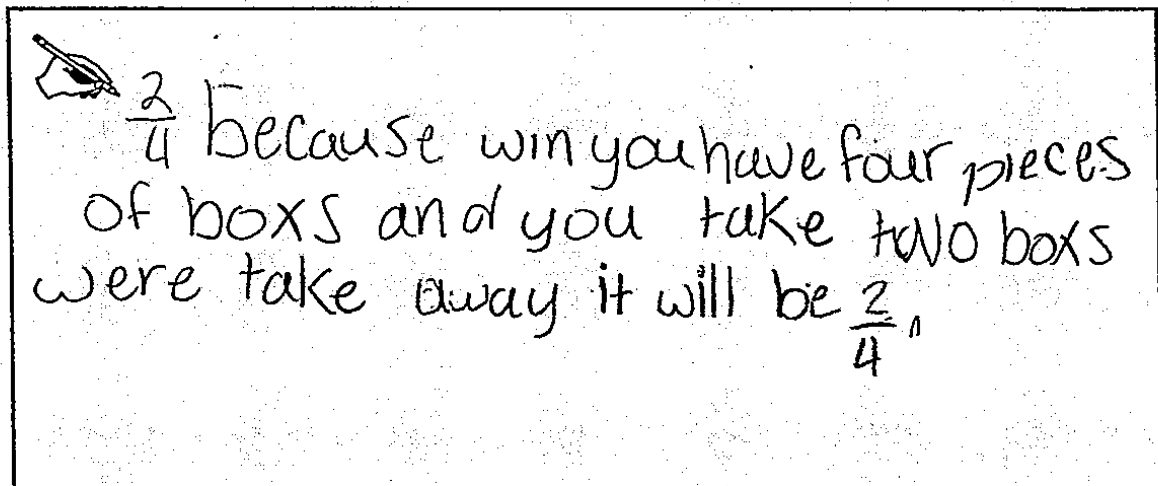 2/4 because win you have four pieces
of boxs and you take two boxs
were take away it will be 2/4.